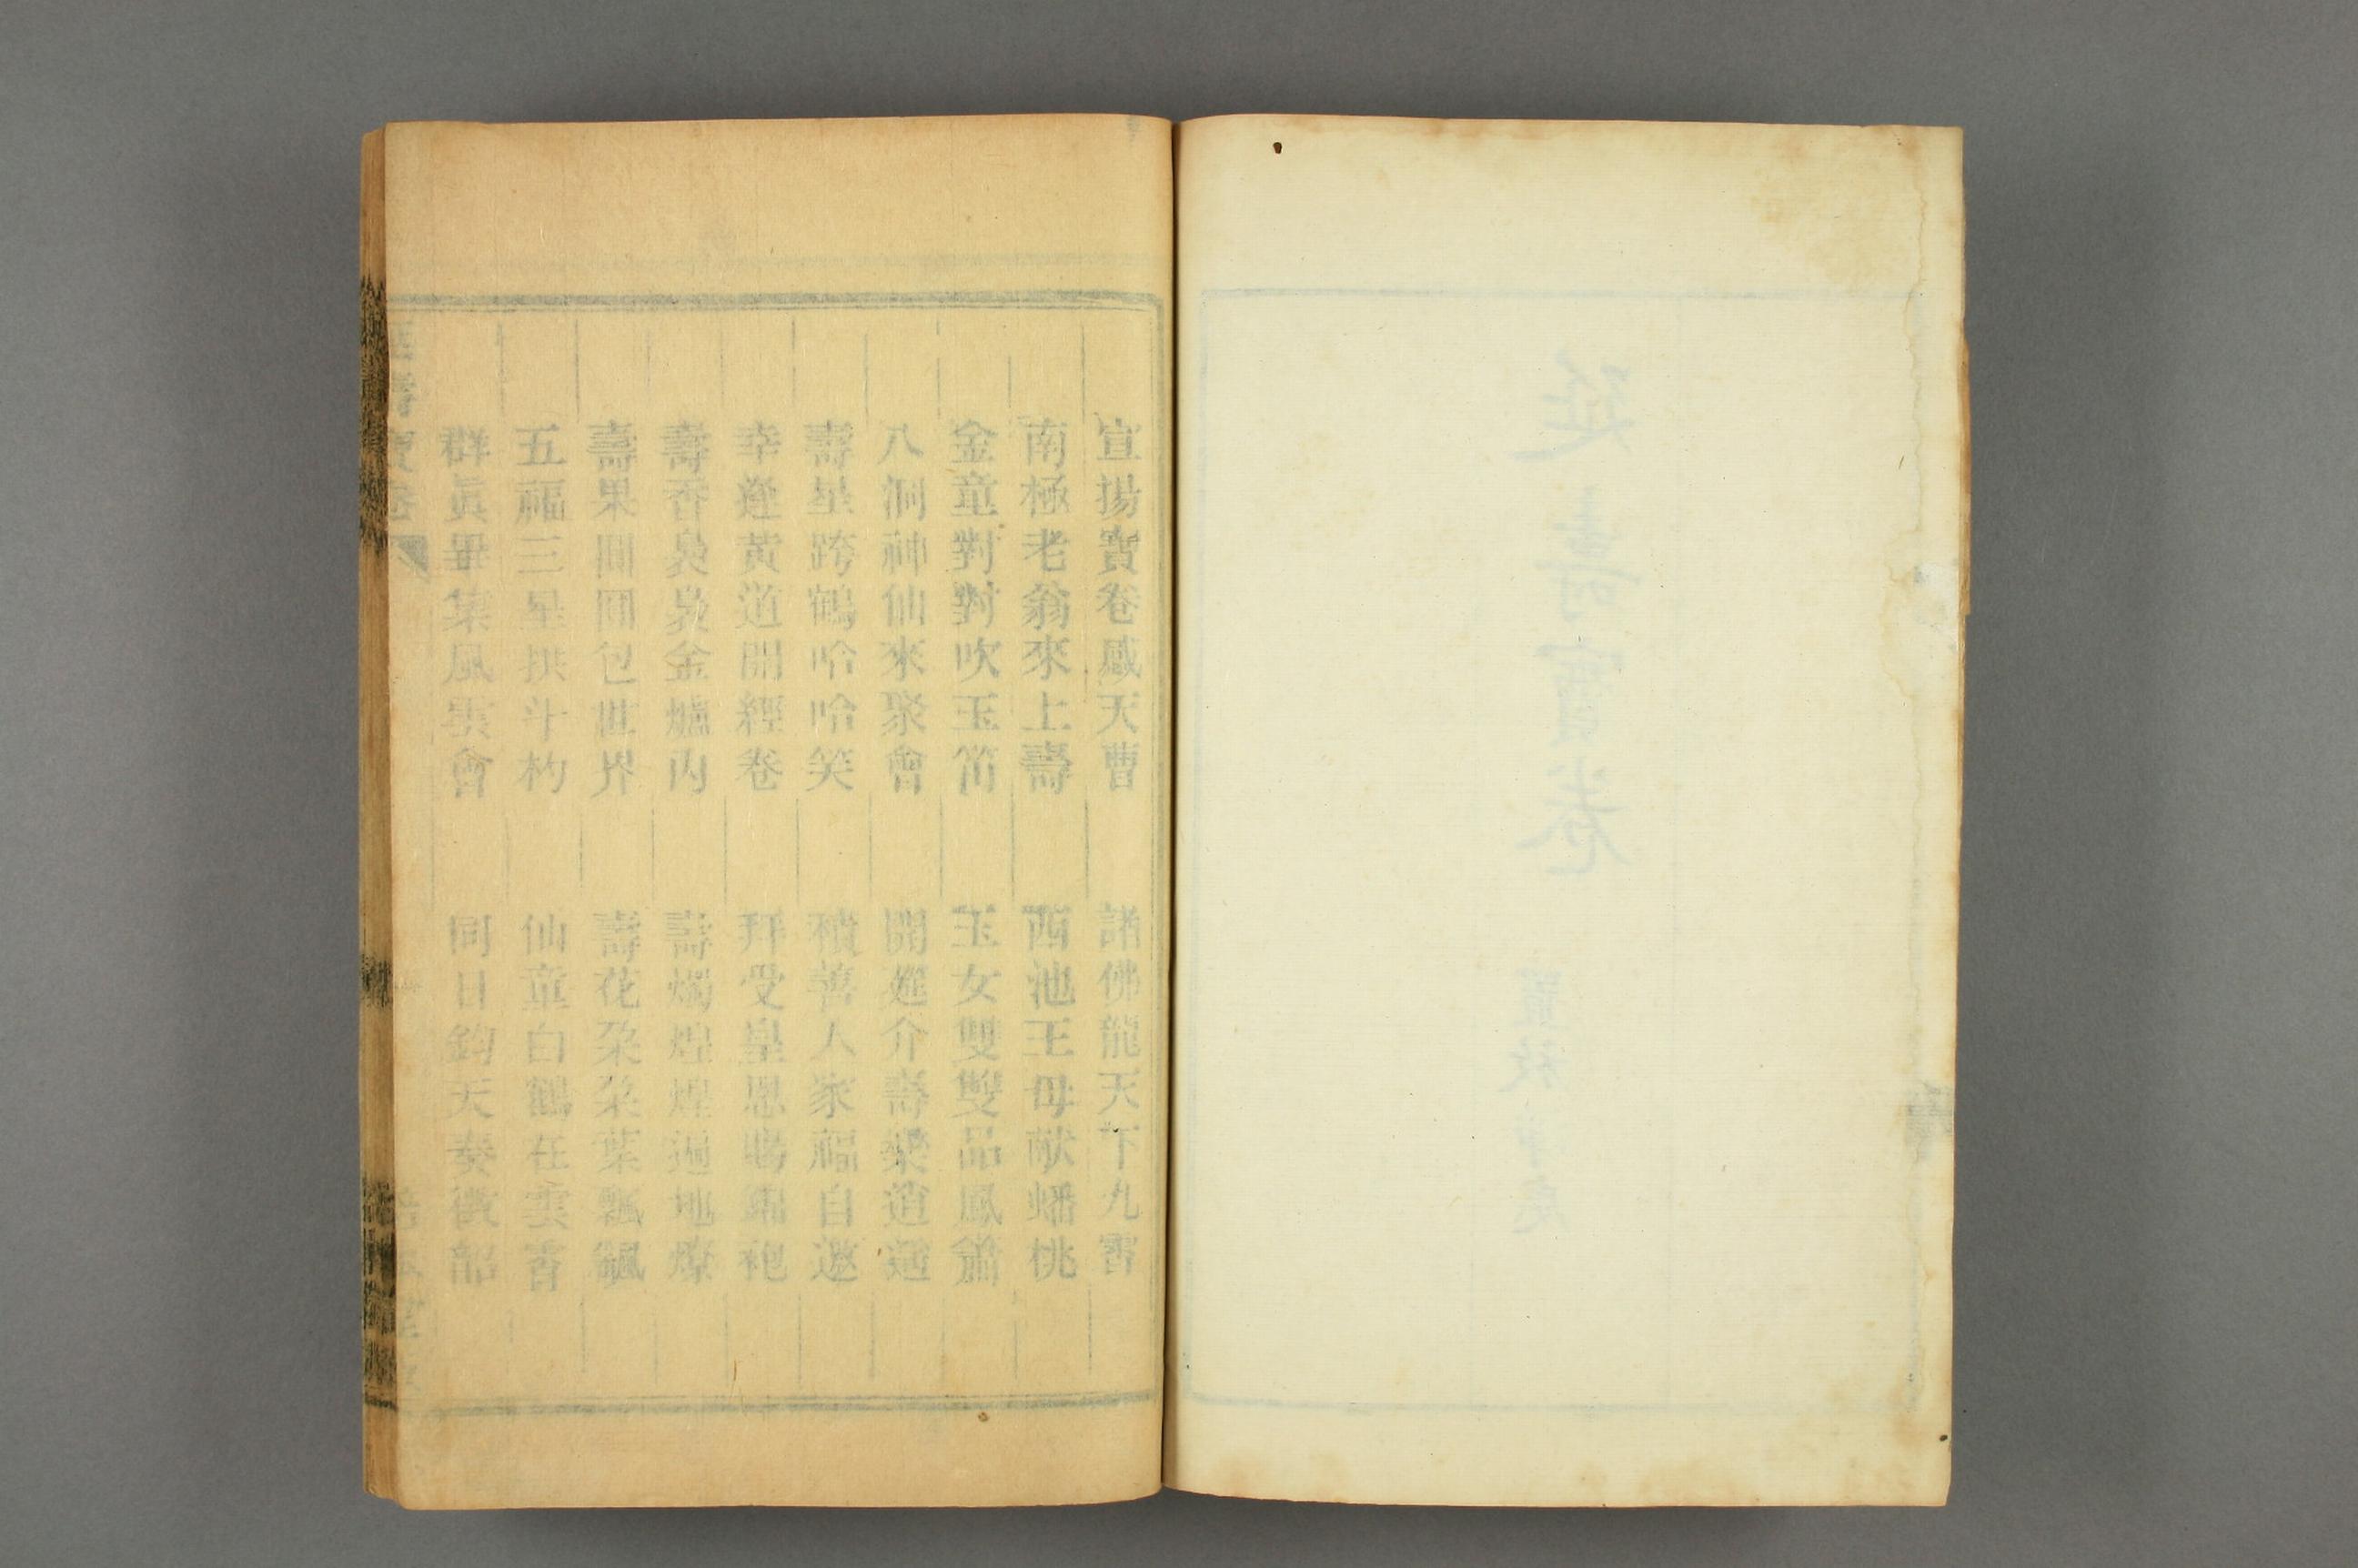 延壽寶卷
宣揚寶卷感天曹　諸佛龍天下九霄
南極老翁來上壽　西池王母献蟠桃
金童對對吹玉笛　玉女雙雙品鳳簫
八洞神仙來聚會　開筵介壽樂逍遥
壽星跨鶴哈哈笑　積善人家福自邀
幸逢黄道開經卷　拜受皇恩賜錦袍
壽香裊裊金爐内　壽燭煌煌遍地燎
壽果圓圓包世界　壽花朶朶葉飄飄
五福三星拱斗杓　仙童白鶴在雲霄
群眞畢集風雲會　同日鈞天奏徵韶
延壽寶卷